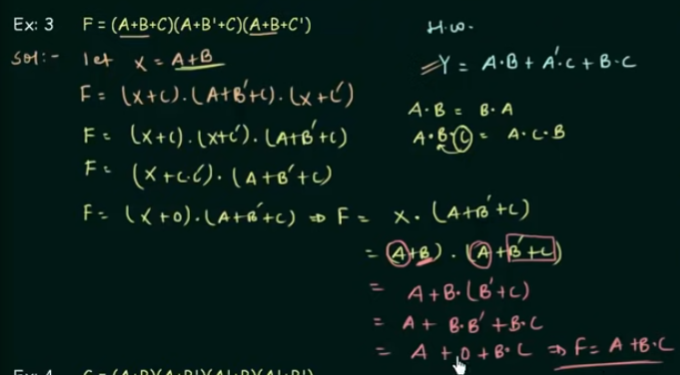 Ex: 3 F = (A+B+C)(A+B'+C)(A+B+C')
Sol:- let X = A+B
F = (X+C).(A+B'+C).(X+C')
F = (X+C).(X+C').(A+B'+C)
F = (X+C.C').(A+B'+C)
F = (X+0).(A+B'+C) ⇒ F = X.(A+B'+C)
= (A+B).(A+B'+C)
= A+B.(B'+C)
= A+ B.B' + B.C
= A + 0 + B.C ⇒ F = A+B.C
H.W.
Y = A.B + A'.C + B.C
A.B = B.A
A.B.C = A.C.B